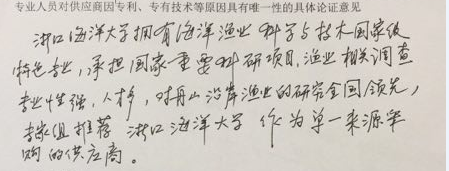 专业人员对供应商因专利、专有技术等原因具有唯一性的具体论证意见
浙江海洋大学拥有海洋渔业科学与技术国家级
特色专业,承担国家重要科研项目,渔业相关调查
专业性强,人才多,对舟山沿岸渔业的研究全国领先,
专家组推荐浙江海洋大学作为单一来源采
购的供应商。